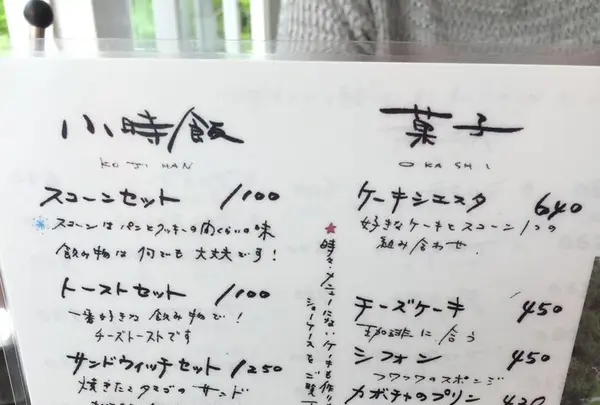 小時飯
KOJIHAN
スコーンセット 1100
スコーンはパンとクッキーの間くらいの味
飲み物は何でも大丈夫です!
トーストセット 1100
一番好きな飲み物で!
チーズトーストです
サンドウィッチセット 1250
焼きたてタマゴのサンド
★時々メニューにないケーキも作り
ショーケースをご覧下
菓子
OKASHI
ケーキシエスタ 640
好きなケーキとスコーン1つの
組み合わせ.
チーズケーキ 450
珈琲に合う
シフォン 450
フワッフワのスポンジ
カボチャのプリン 420